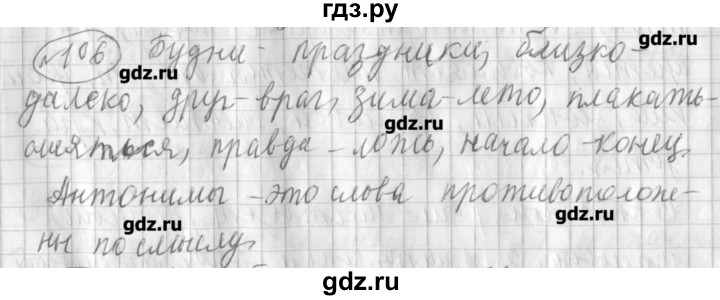 гдз.ру
№106 Будни - праздники, близко-
gdz.ru gdz.ru
далеко, друг-враг, зима-лето, плакать-
gdz.ru
смеяться, правда - ложь, начало-конец.
Антонимы - это слова противополож-
gdz.ru gdz.ru
ны по смыслу.
gdz.ru